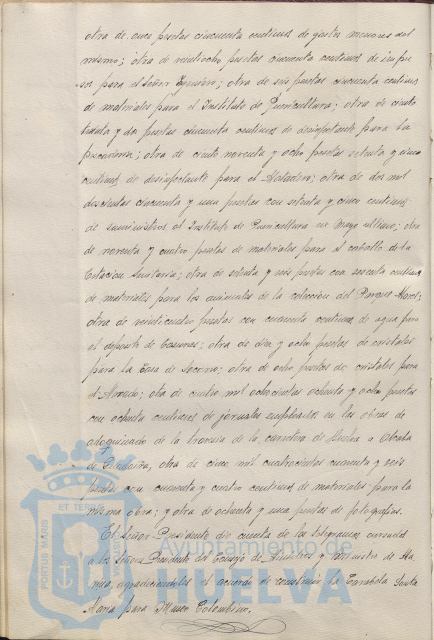 otra de once pesetas cincuenta centimos de gastos menores del
mismo; otra de veintiocho pesetas cincuenta centimos de impre
sos para el Señor ; otra de seis pesetas cincuenta centimos
de materiales para el Instituto de Puericultura; otra de ciento
treinta y dos pesetas cincuenta centimos de desinfectante para la
pescaderia; otra de ciento noventa y ocho pesetas setenta y cinco
centimos de desinfectante para el Matadero; otra de dos mil
doscientas cincuenta y una pesetas con setenta y cinco centimos
de suministros al Instituto de Puericultura en Mayo ultimo; otra
de noventa y cuatro pesetas de materiales para el caballo de la
Estacion Sanitaria; otra de setenta y seis pesetas con sesenta centimos
de materiales para los animales de la coleccion del Parque Moret;
otra de veinticuatro pesetas con cuarenta centimos de agua para
el deposito de basuras; otra de diez y ocho pesetas de cristales
para la Casa de Socorro; otra de ocho pesetas de cristales para
el Mercado; otra de cuatro mil ochocientas ochenta y ocho pesetas
con ochenta centimos de jornales empleados en las obras de
adoquinado de la travesia de la carretera de Huelva a Alcala
de Guadaira, otra de cinco mil cuatrocientas cuarenta y seis
pesetas con cuarenta y cuatro centimos de materiales para la
misma obra; y otra de ochenta y una pesetas de fotografias.
El Señor Presidente dio cuenta de los telegramas cursados
a los Señores Presidente del Consejo de Ministros y Ministro de Ma
rina, agradeciendoles el acuerdo de construir la Carabela Santa
Maria para Museo Colombino.
PORTUS MARIS
ET TERRAE
Ayuntamiento de
HUELVA